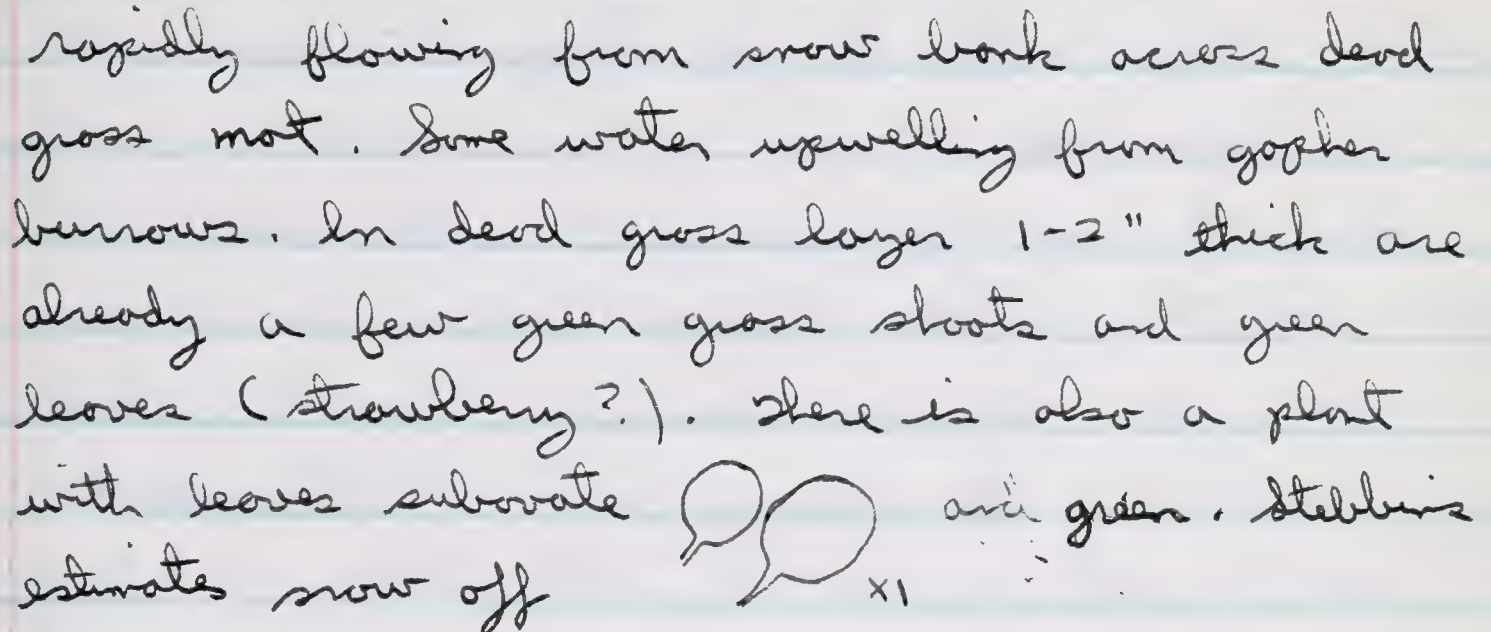 rapidly flowing from snow bank across dead
grass mat. Some water upwelling from gopher
burrows. In dead grass layer 1-2" thick are
already a few green grass shoots and green
leaves (strawberry?). There is also a plant
with leaves subovate and green. Stebbins
estimates snow off x1